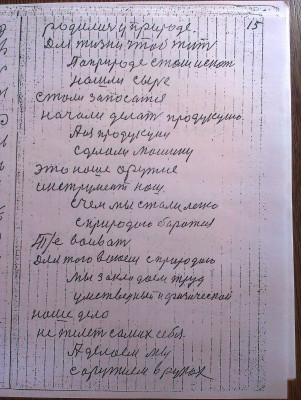 15
родилис у природе.
Для жизни чтоб жит
А природе стали искат
нашли сыре
стали запосатся
начали делат продукцию.
А из продукции
сделали машину
это наше оружие
инструмент наш.
С чем мы стали легко
с природою баротся
Т/е воеват
Для того воюем с природою
мы закладоем труд
умственый и физической
наше дело
не жалет самих себя.
А делаем мы
с оружием в руках